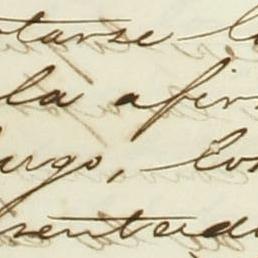 otarse l
la afir
argo, los
sentado